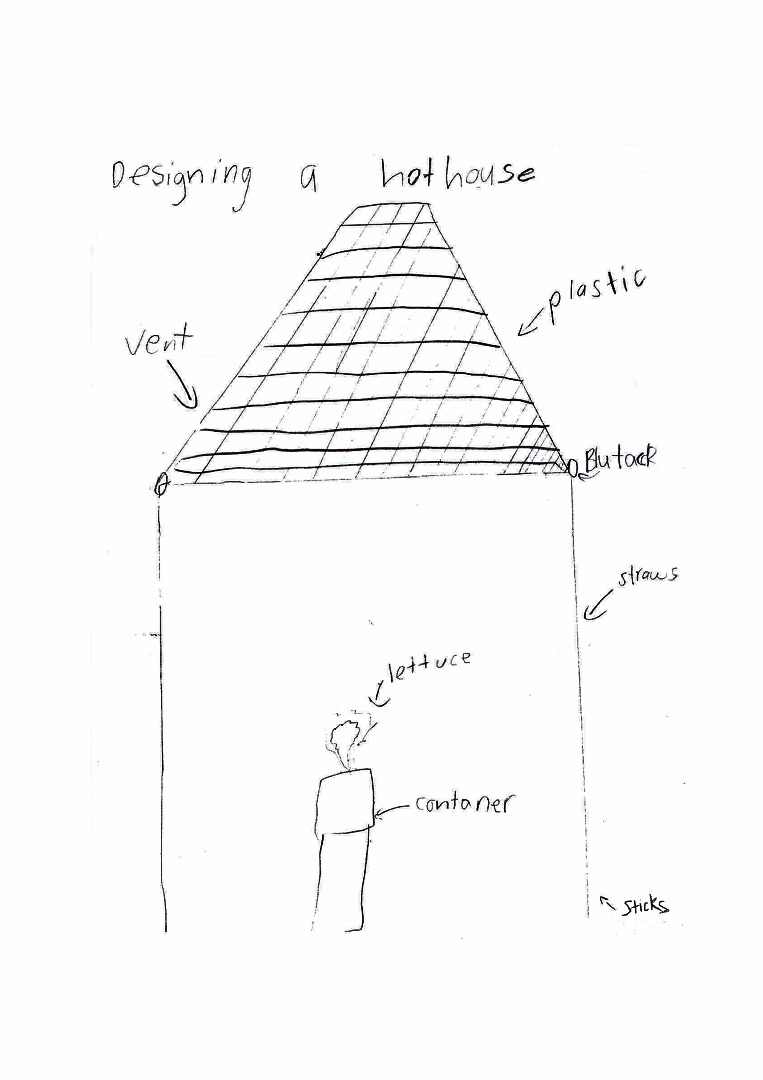 Designing a hothouse
plastic
vent
Blutack
straws
lettuce
contaner
sticks